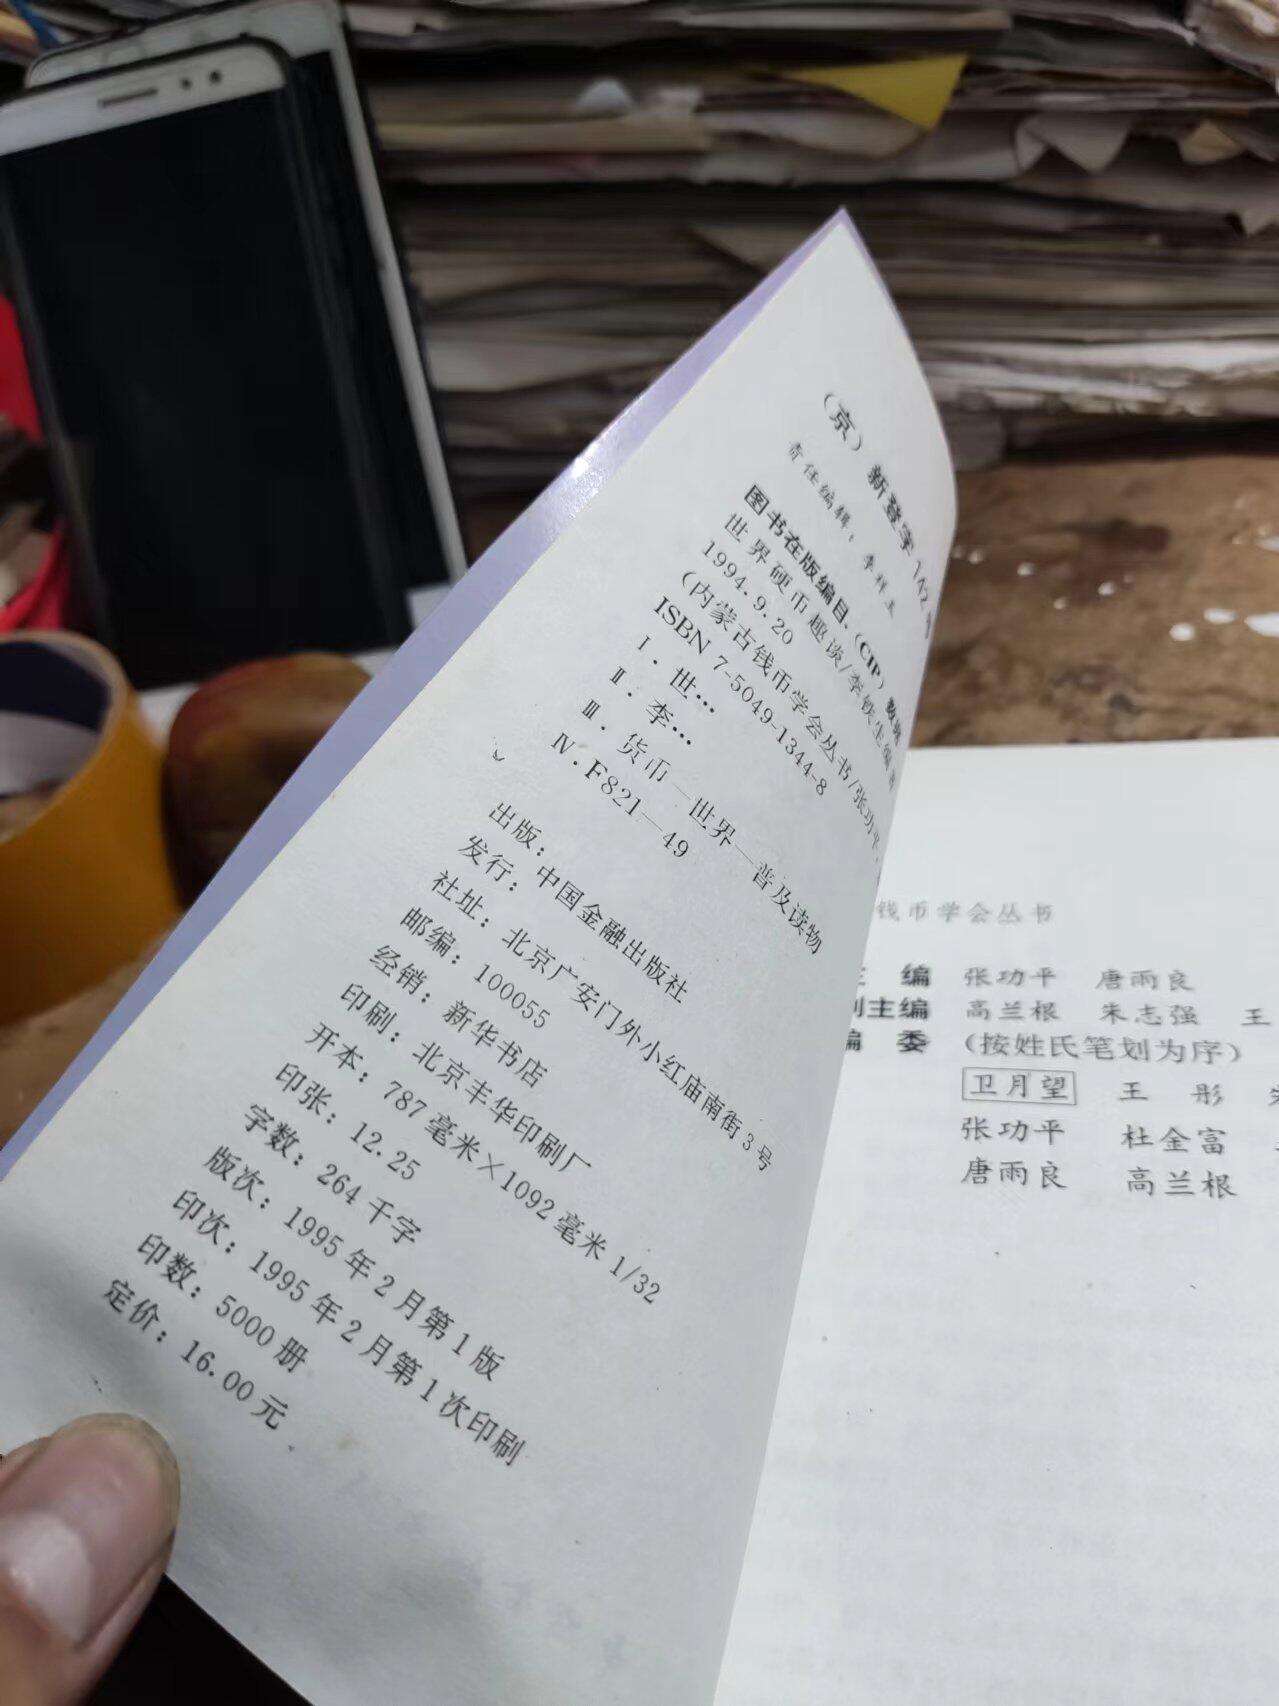 （京）新登字142号
责任编辑：李祥玉
图书在版编目（CIP）数据
世界硬币趣谈/李铁生编著
1994.9.20
（内蒙古钱币学会丛书/张功平，
ISBN 7-5049-1344-8
Ⅰ·世…
Ⅱ·李…
Ⅲ·货币—世界—普及读物
Ⅳ·F821—49
出版：中国金融出版社
发行：
社址：北京广安门外小红庙南街3号
邮编：100055
经销：新华书店
印刷：北京丰华印刷厂
开本：787毫米×1092毫米1/32
印张：12.25
字数：264千字
版次：1995年2月第1版
印次：1995年2月第1次印刷
印数：5000册
定价：16.00元
钱币学会丛书
主 编 张功平 唐雨良
副主编 高兰根 朱志强 王
编 委 （按姓氏笔划为序）
卫月望 王 彤
张功平 杜金富
唐雨良 高兰根